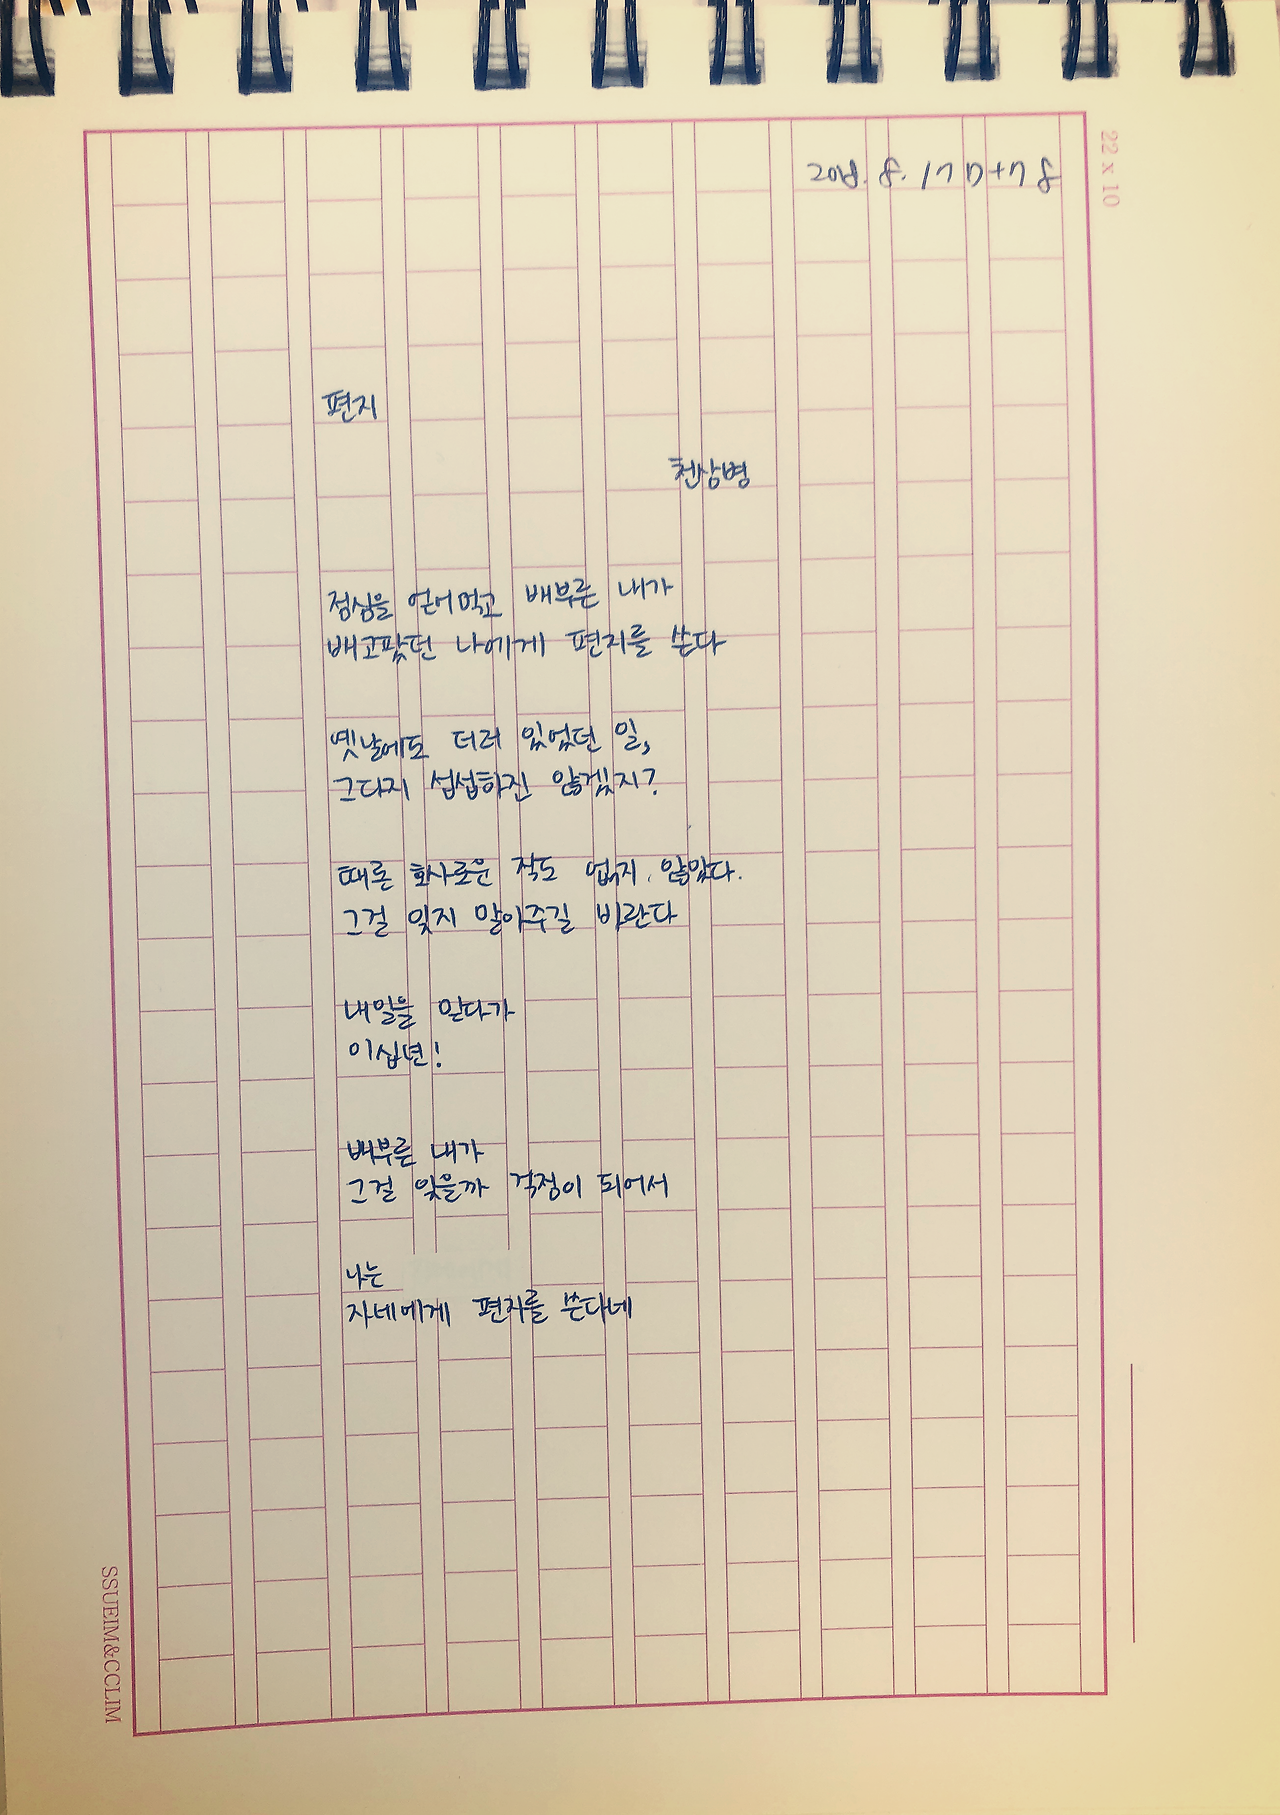 22 x 10
2018. 8. 17 D+78
편지
천상병
점심을 얻어먹고 배부른 내가
배고팠던 나에게 편지를 쓴다
옛날에도 더러 있었던 일,
그다지 섭섭하진 않겠지?
때론 호사로운 적도 없지 않았다.
그걸 잊지 말아주길 바란다
내일을 믿다가
이십년!
배부른 내가
그걸 잊을까 걱정이 되어서
나는
자네에게 편지를 쓴다네
SSUEIM&CCLIM